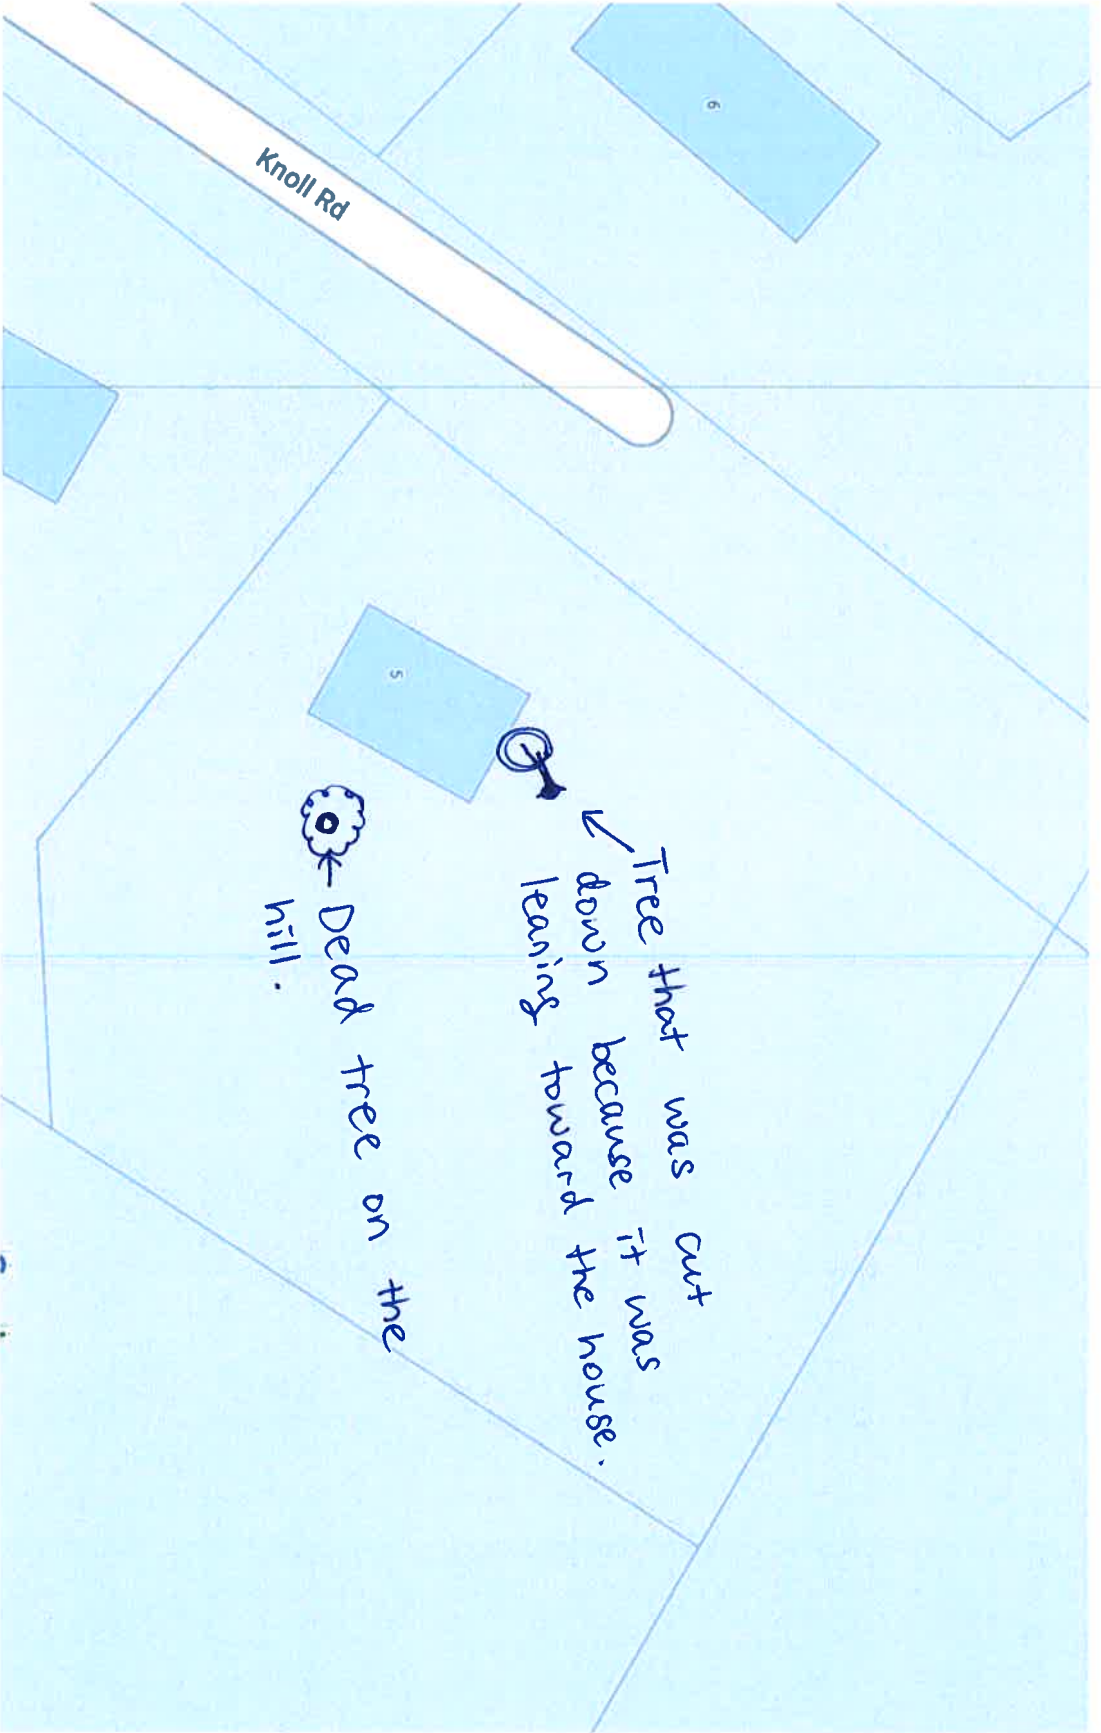 6
Knoll Rd
5
Tree that was cut
down because it was
leaning toward the house.
Dead tree on the
hill.